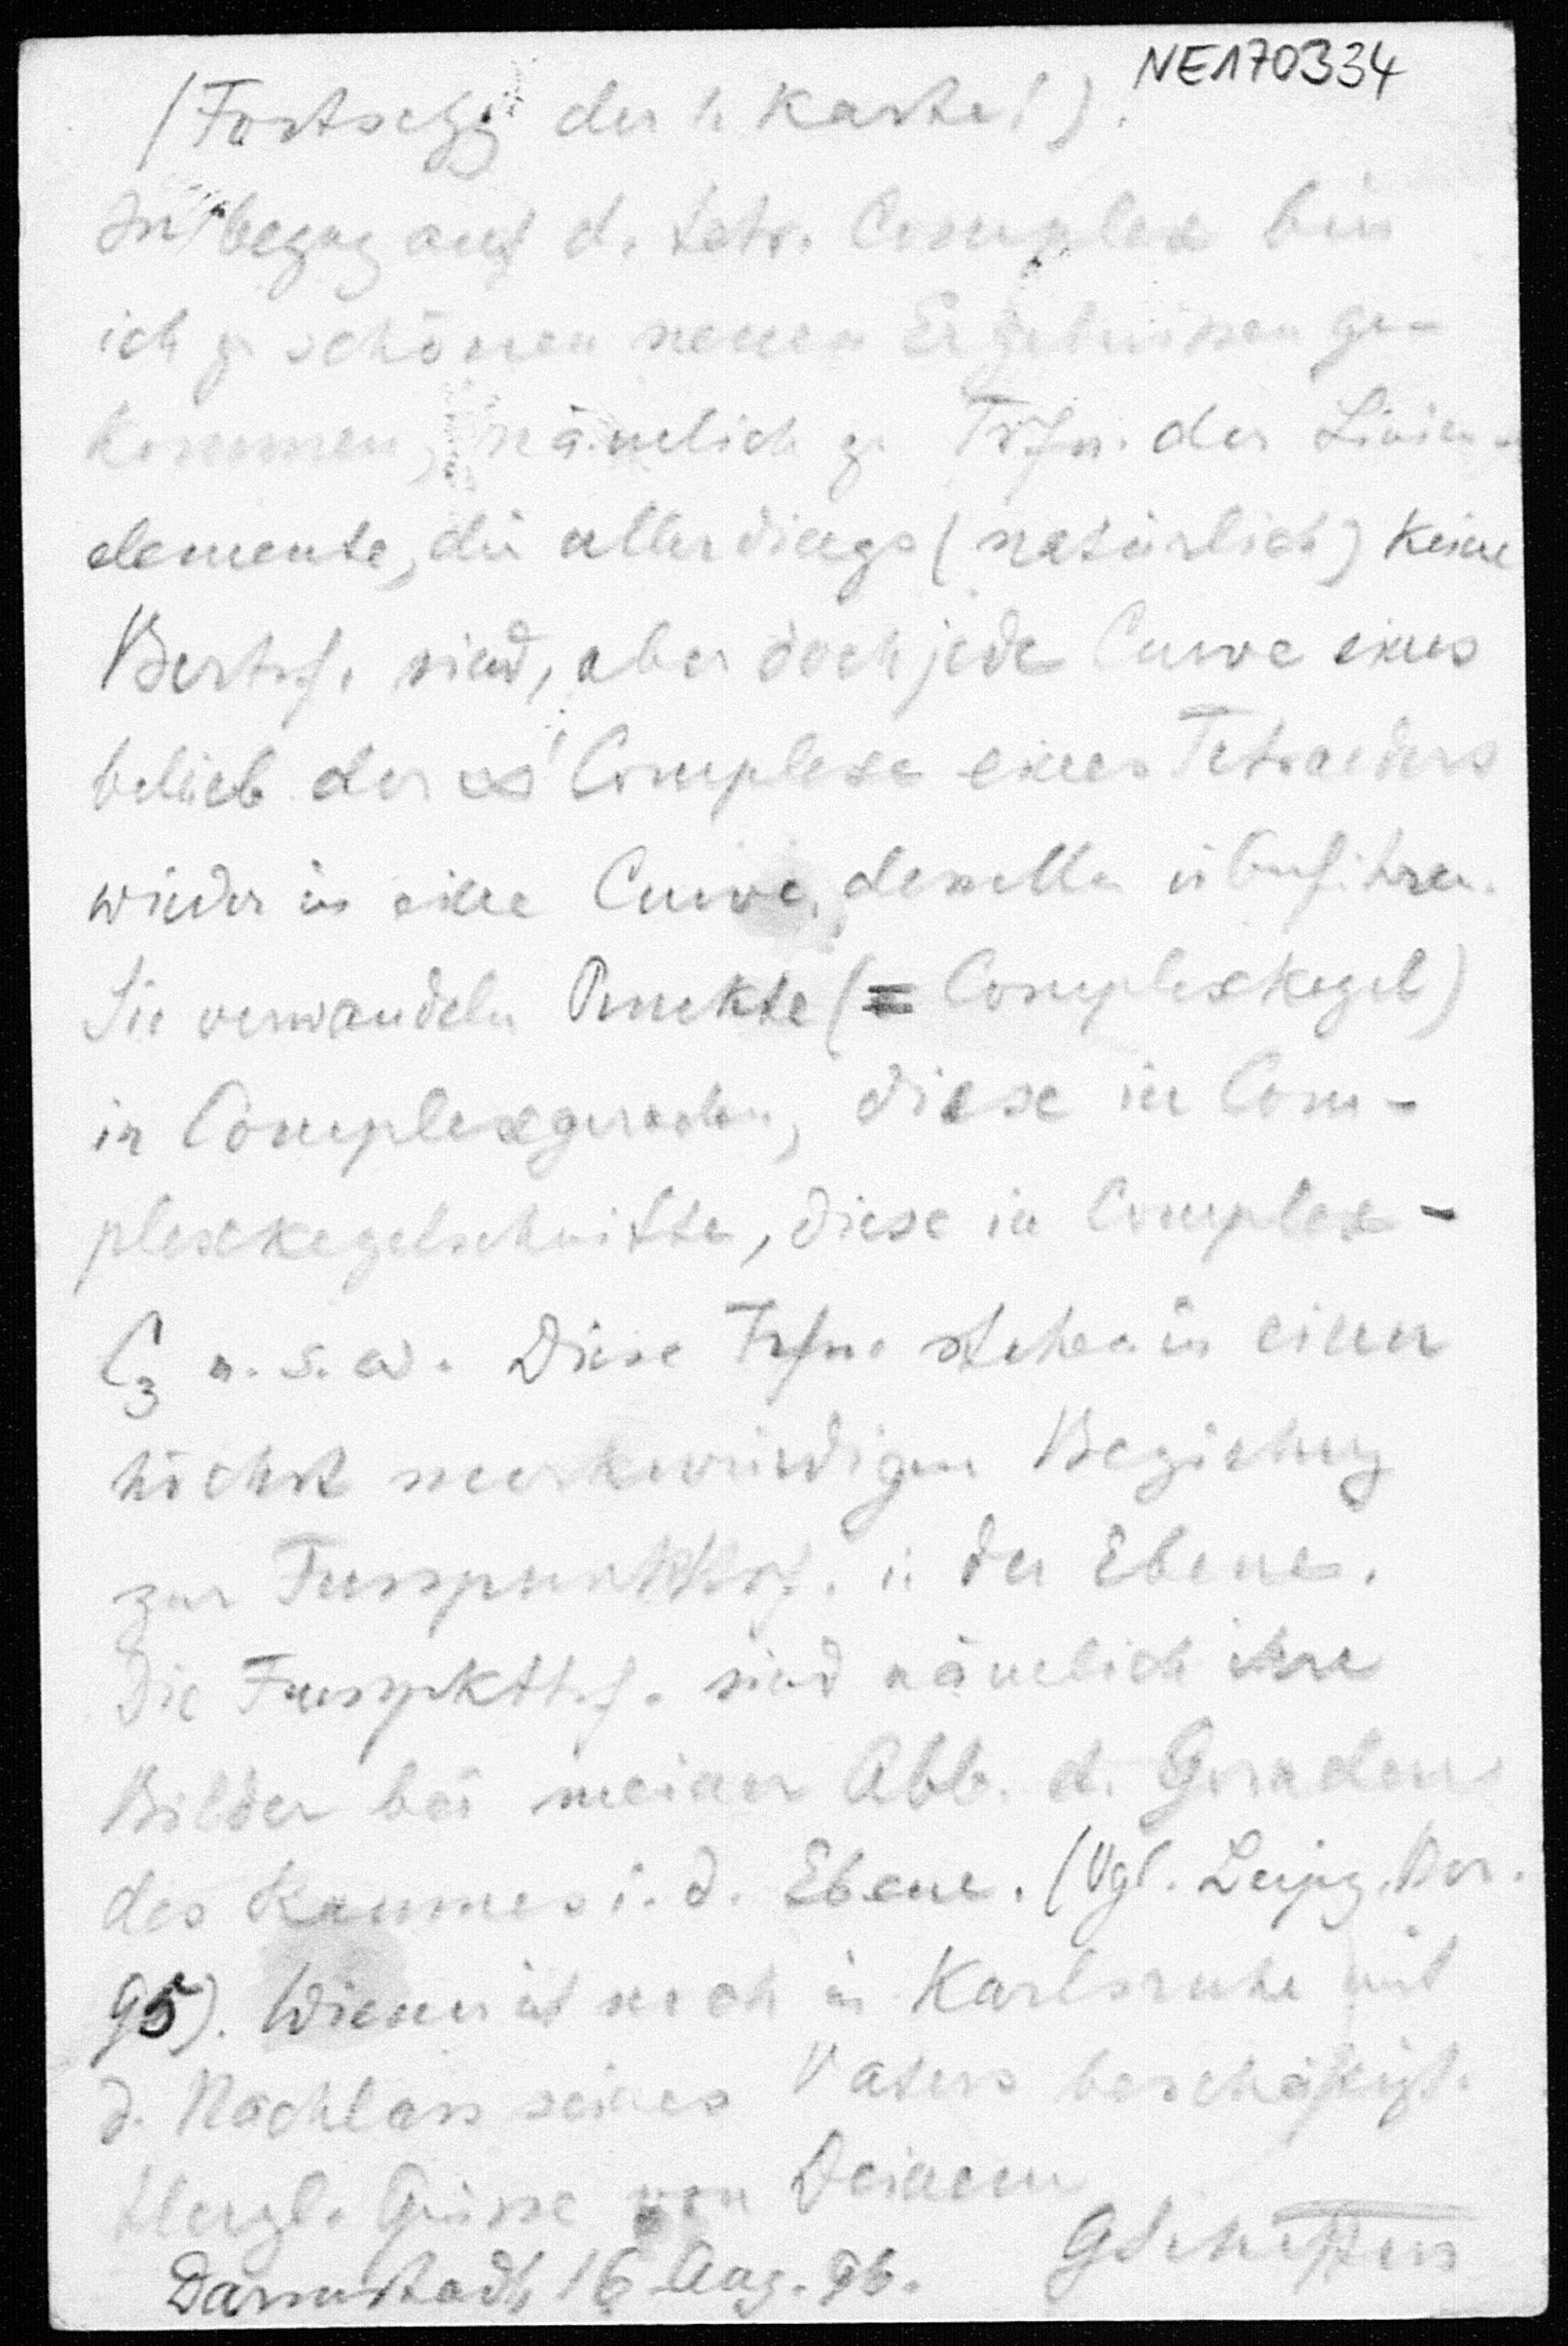 NE170334
(Fortsetzg der 1. Karte!).
In bezug auf d. tetr. Complex bin
ich z. schönen neuen Ergebnissen ge-
kommen, nämlich z. Trfn. der Linien-
elemente, die allerdings (natürlich) keine
Bertrf. sind, aber doch jede Curve eines
belieb. der ∞¹ Complexe eines Tetraeders
wieder in eine Curve desselben überführen.
Sie verwandeln Punkte (= Complexkegel)
in Complexgeraden, diese in Com-
plexkegelschnitte, diese in Complex-
C₃ u.s.w. Diese Trfn. stehen in einer
höchst merkwürdigen Beziehung
zur Fusspunkttrf. in der Ebene.
Die Fusspkttrf. sind nämlich ihre
Bilder bei meiner Abb. d. Geraden
des Raumes i. d. Ebene. (Vgl. Leipz. Ber.
95). Wiener ist noch in Karlsruhe mit
d. Nachlass seines Vaters beschäftigt.
Herzl. Grüsse von Deinem
GScheffers
Darmstadt, 16 Aug. 96.